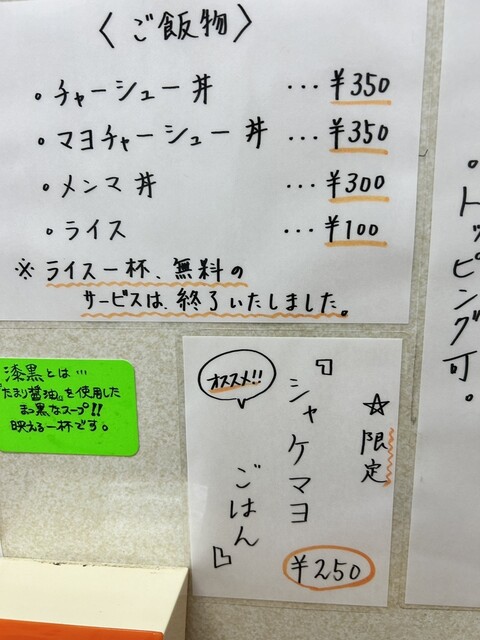 〈ご飯物〉
。チャーシュー丼 …¥350
。マヨチャーシュー丼 …¥350
。メンマ丼 …¥300
。ライス …¥100
※ライス一杯、無料の
サービスは、終了いたしました。
。トッピング可。
漆黒とは…
『たまり醤油』を使用した
まっ黒なスープ!!
映える一杯です。
オススメ!!
☆限定
『シャケマヨ
ごはん』
¥250